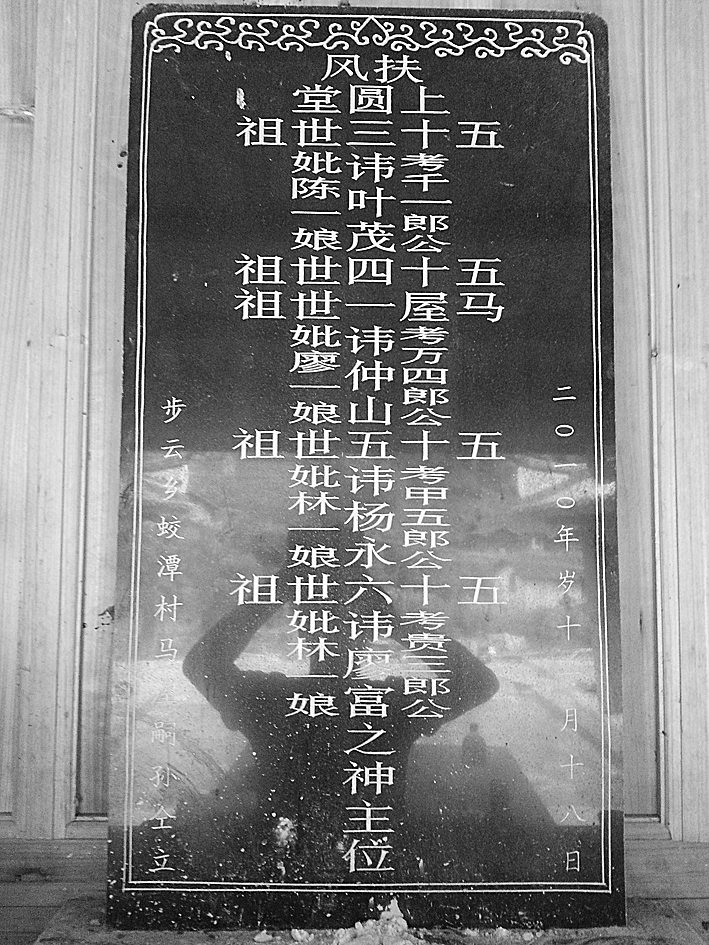 扶风
上圆堂
二〇一〇年岁十月十八日
五十三世祖
考千一郎公
讳叶茂
妣陈一娘
五十四世祖
马屋一世祖
考万四郎公
讳仲山
妣廖一娘
五十五世祖
考甲五郎公
讳杨永
妣林一娘
五十六世祖
考贵三郎公
讳廖富
妣林一娘
之神主位
步云乡蛟潭村马嗣孙仝立